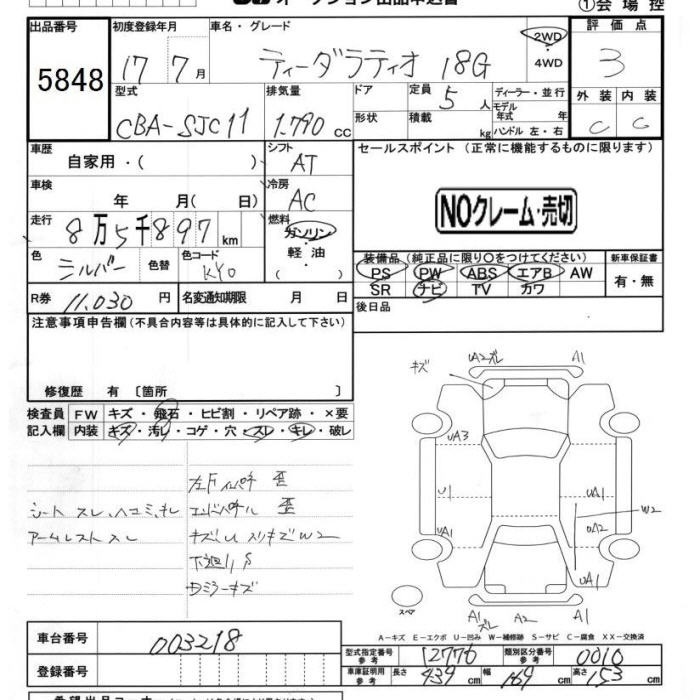 オークション出品申込書
①会場控
出品番号 初度登録年月 車名・グレード 評価点
5848 17 7月 ティーダラティオ 18G 2WD 4WD 3
型式 排気量 ドア 定員 ディーラー・並行 外装 内装
CBA-SJC11 1.790 cc 形状 積載 5人 kg モデル年式 年 ハンドル 左・右 C C
車歴 シフト セールスポイント (正常に機能するものに限ります)
自家用・( ) AT
車検 冷房
年 月( 日) AC
NOクレーム・売切
走行 燃料
8万5千897 km ガソリン 軽油 ( )
色 色替 色コード
シルバー KY0
装備品 (純正品に限り○をつけてください) 新車保証書
PS PW ABS エアB AW 有・無
SR ナビ TV カワ
R券 11,030 円 名変通知期限 月 日 後日品
注意事項申告欄(不具合内容等は具体的に記入して下さい)
修復歴 有 〔箇所 〕
検査員 FW キズ・飛石・ヒビ割・リペア跡・×要
記入欄 内装 キズ・汚れ・コゲ・穴・スレ・キレ・破レ
シート スレ、ヘコミ、キレ
アームレスト スレ
歪
歪
キズ U スリキズ W2
下廻り S
ミラーキズ
キズ UA2 ズレ A1
UA3
U1 UA1 W2
UA1 UA2
UA1
スペア A1 ズレ A2 A1
A-キズ E-エクボ U-凹み W-補修跡 S-サビ C-腐食 XX-交換済
車台番号 003218
登録番号
型式指定番号 参考 12776 類別区分番号 参考 0010
車庫証明用 参考 長さ 439 cm 幅 169 cm 高さ 153 cm